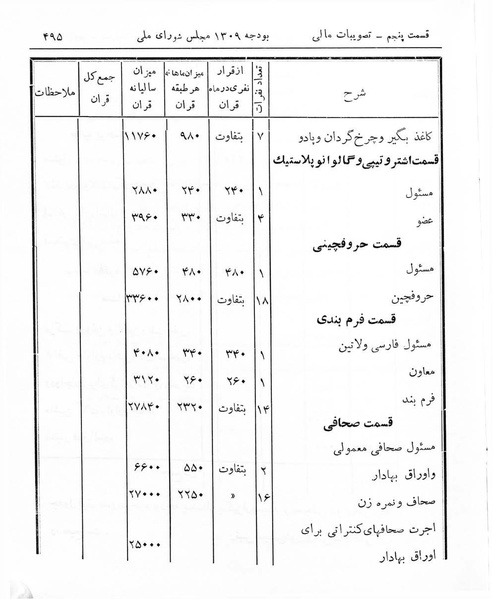 قسمت پنجم – تصویبات مالی بودجه ۱۳۰۹ مجلس شورای ملی ۴۹۵
شرح تعداد نفرات ازقرار نفری درماه قران میزان ماهانه هرطبقه قران میزان سالیانه قران جمع کل قران ملاحظات
کاغذ بگیر و چرخ گردان و پادو ۷ بتفاوت ۹۸۰ ۱۱۷۶۰
قسمت اشتروتیپی و گالوانوپلاستیك
مسئول ۱ ۲۴۰ ۲۴۰ ۲۸۸۰
عضو ۴ بتفاوت ۳۳۰ ۳۹۶۰
قسمت حروفچینی
مسئول ۱ ۴۸۰ ۴۸۰ ۵۷۶۰
حروفچین ۱۸ بتفاوت ۲۸۰۰ ۳۳۶۰۰
قسمت فرم بندی
مسئول فارسی ولاتین ۱ ۳۴۰ ۳۴۰ ۴۰۸۰
معاون ۱ ۲۶۰ ۲۶۰ ۳۱۲۰
فرم بند ۱۴ بتفاوت ۲۳۲۰ ۲۷۸۴۰
قسمت صحافی
مسئول صحافی معمولی
واوراق بهادار ۲ بتفاوت ۵۵۰ ۶۶۰۰
صحاف ونمره زن ۱۶ » ۲۲۵۰ ۲۷۰۰۰
اجرت صحافیهای کنتراتی برای
اوراق بهادار ۲۵۰۰۰